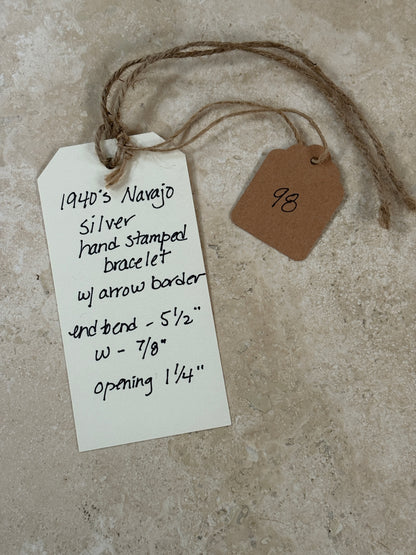 1940's Navajo
silver
hand stamped
bracelet
w/ arrow border
end to end - 5 1/2"
w - 7/8"
opening 1 1/4"
98